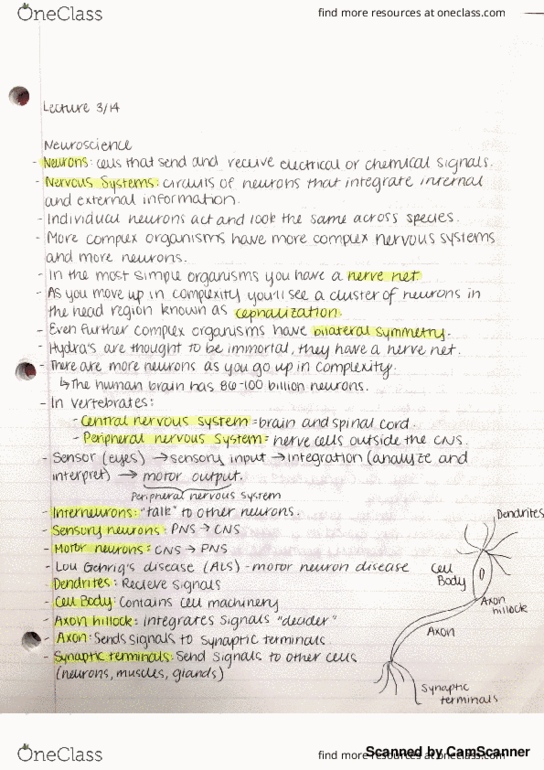 OneClass
find more resources at oneclass.com
Lecture 3/14
Neuroscience
- Neurons: cells that send and receive electrical or chemical signals.
- Nervous Systems: circuits of neurons that integrate internal
and external information.
- Individual neurons act and look the same across species.
- More complex organisms have more complex nervous systems
and more neurons.
- In the most simple organisms you have a nerve net
- As you move up in complexity you'll see a cluster of neurons in
the head region known as cephalization.
- Even further complex organisms have bilateral symmetry.
- Hydra's are thought to be immortal, they have a nerve net.
- There are more neurons as you go up in complexity.
↳ The human brain has 86-100 billion neurons.
- In vertebrates:
- Central nervous system = brain and spinal cord.
- Peripheral nervous system = nerve cells outside the CNS.
- Sensor (eyes) → sensory input → integration (analyze and
interpret) → motor output.
Peripheral nervous system
- Interneurons: "talk" to other neurons.
- Sensory neurons: PNS → CNS
- Motor neurons: CNS → PNS
- Lou Gehrig's disease (ALS) - motor neuron disease
- Dendrites: Recieve signals
- Cell Body: Contains cell machinery
- Axon hillock: integrates signals "decider"
- Axon: Sends signals to synaptic terminals
- Synaptic terminals: Send signals to other cells
(neurons, muscles, glands)
Dendrites
Cell
Body
Axon
hillock
Axon
Synaptic
terminals
OneClass
find more resources at oneclass.com
Scanned by CamScanner